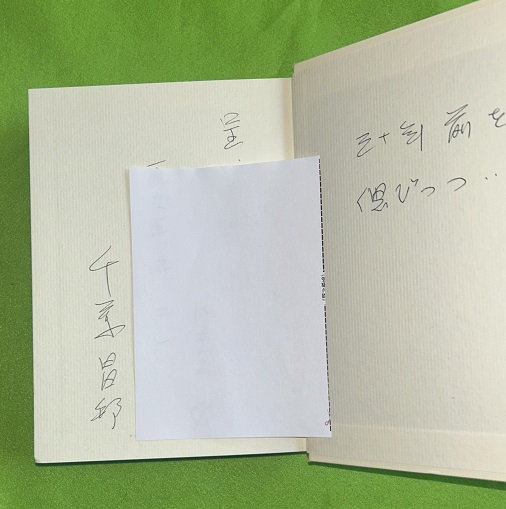 三十年前を
偲びつつ…
呈
千葉昌邦